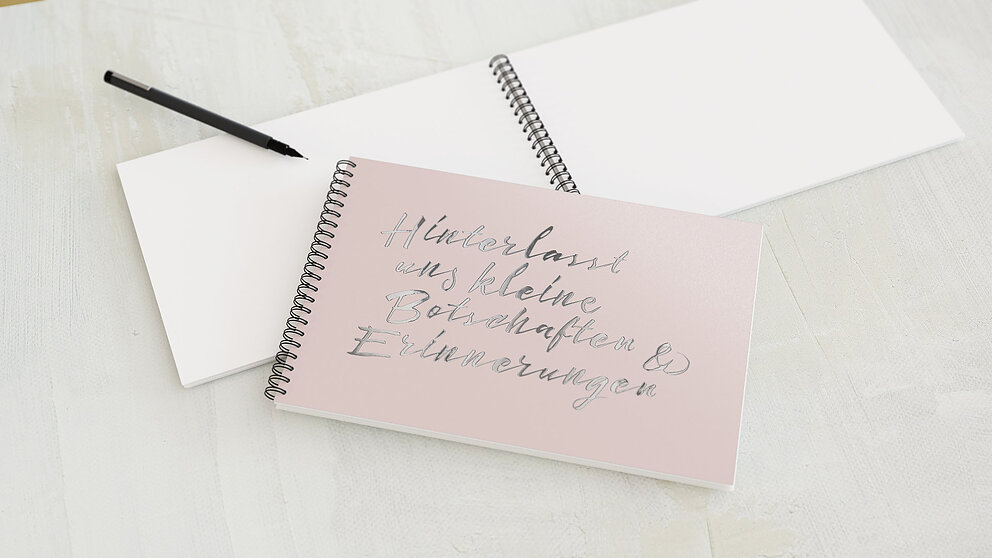 Hinterlasst
uns kleine
Botschaften &
Erinnerungen